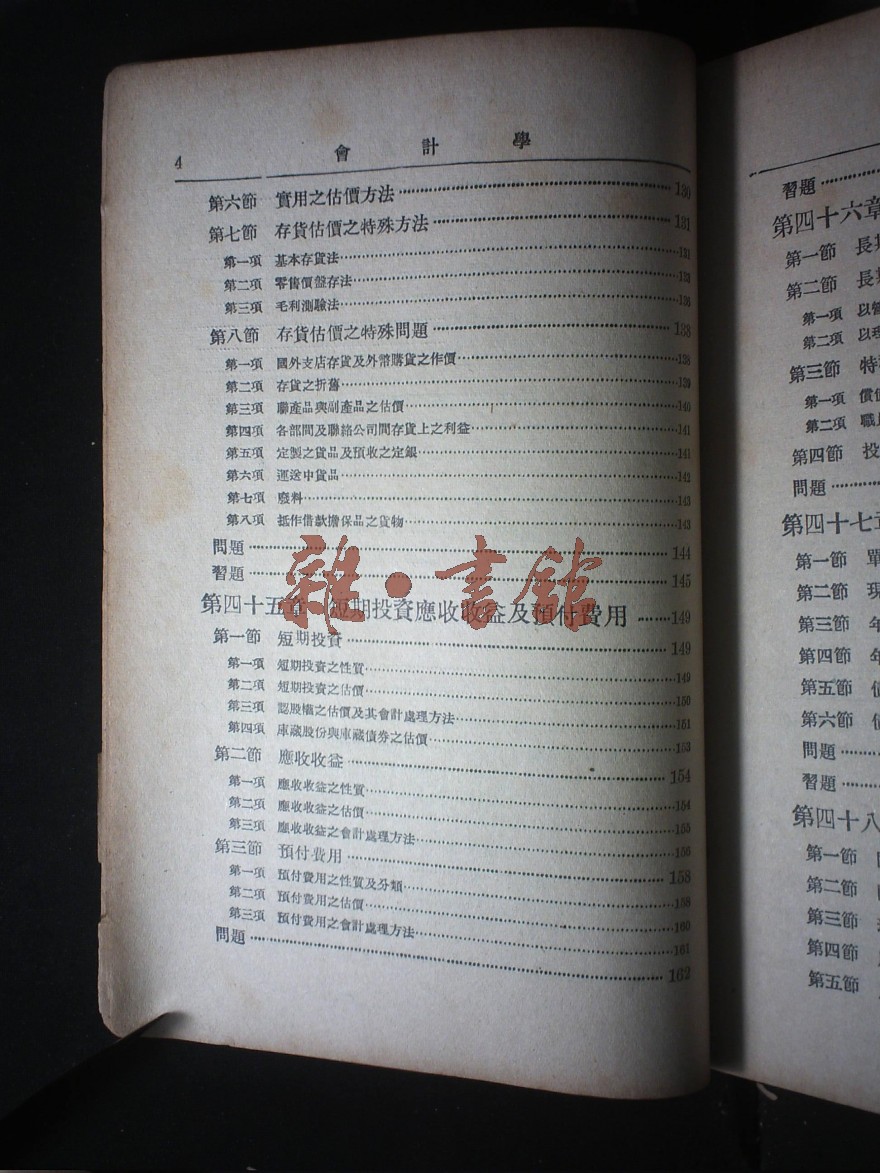 4 會計學
第六節 實用之估價方法 130
第七節 存貨估價之特殊方法 131
第一項 基本存貨法 131
第二項 零售價盤存法 133
第三項 毛利測驗法 136
第八節 存貨估價之特殊問題 138
第一項 國外支店存貨及外幣購貨之作價 138
第二項 存貨之折舊 139
第三項 聯產品與副產品之估價 140
第四項 各部間及聯絡公司間存貨上之利益 141
第五項 定製之貨品及預收之定銀 141
第六項 運送中貨品 142
第七項 廢料 143
第八項 抵作借款擔保品之貨物 143
問題 144
習題 145
第四十五章 短期投資應收收益及預付費用 149
第一節 短期投資 149
第一項 短期投資之性質 149
第二項 短期投資之估價 150
第三項 認股權之估價及其會計處理方法 151
第四項 庫藏股份與庫藏債券之估價 153
第二節 應收收益 154
第一項 應收收益之性質 154
第二項 應收收益之估價 155
第三項 應收收益之會計處理方法 156
第三節 預付費用 158
第一項 預付費用之性質及分類 158
第二項 預付費用之估價 160
第三項 預付費用之會計處理方法 161
問題 162
雜·書館
習題
第四十六章
第一節 長
第二節 長
第一項 以
第二項 以
第三節 特
第一項 償
第二項 職
第四節 投
問題
第四十七章
第一節 單
第二節 現
第三節 年
第四節 年
第五節
第六節
問題
習題
第四十八
第一節
第二節
第三節
第四節
第五節